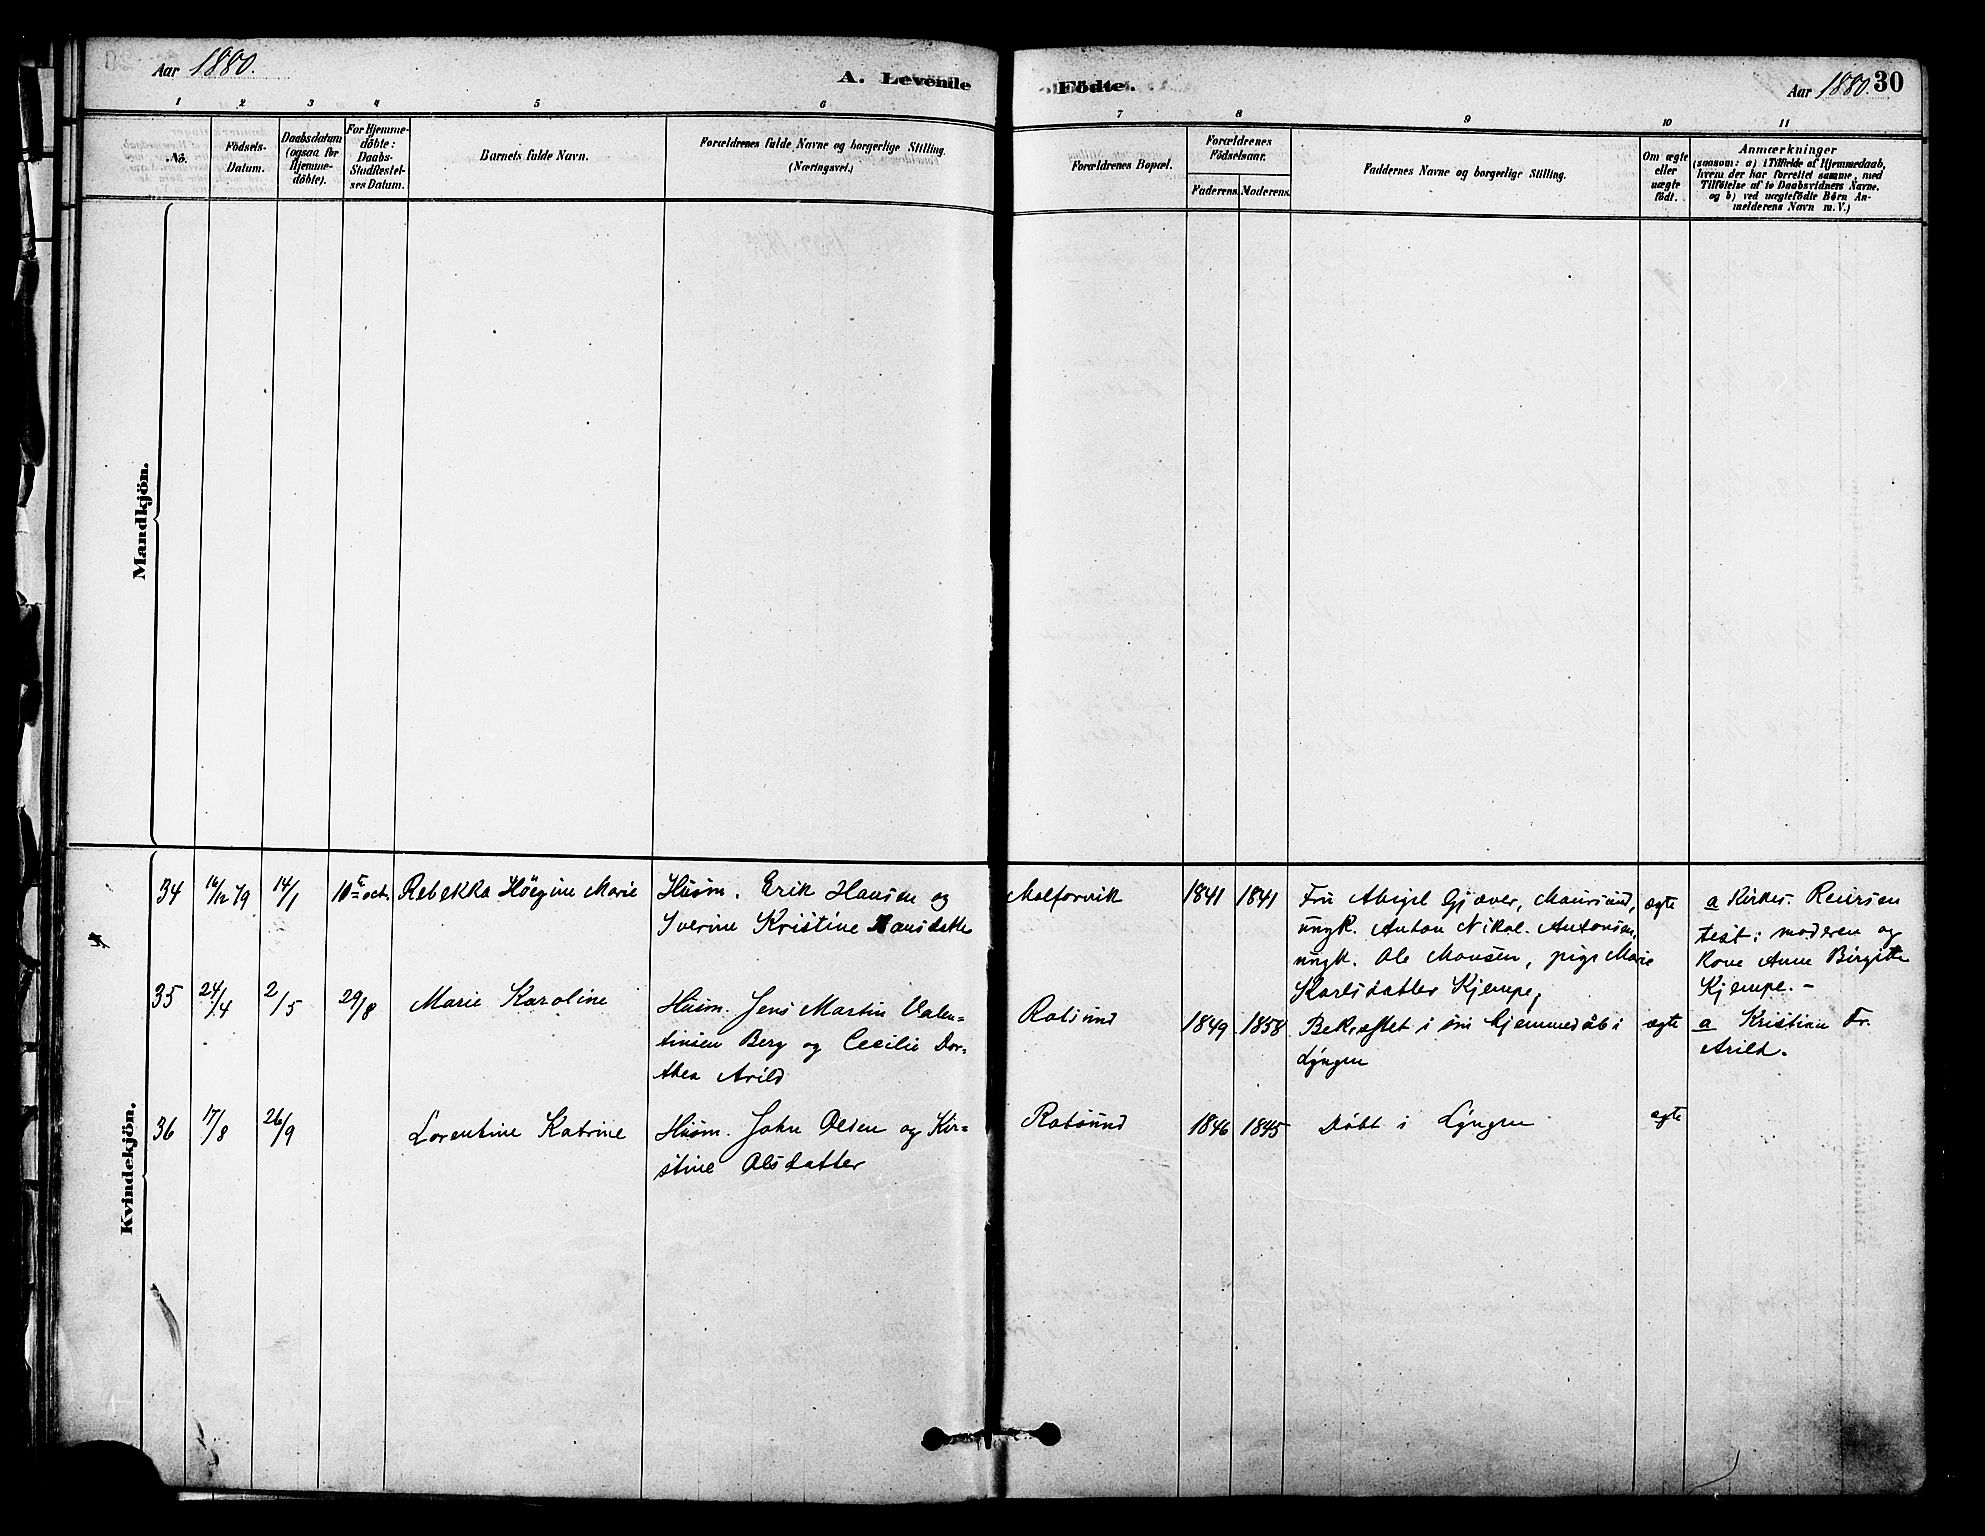 Aar 1880.
A. Levende Födte.
Aar 1880. 30
1 2 3 4 5 6 7 8 9 10 11
No.
Födsels-
Datum.
Daabsdatum
(ogsaa for
Hjemme-
döbte).
For Hjemme-
döbte:
Daabs-
Stadfæstel-
ses Datum.
Barnets fulde Navn.
Forældrenes fulde Navne og borgerlige Stilling.
(Næringsvei.)
Forældrenes Bopæl.
Forældrenes
Födselsaar.
Faderens. Moderens.
Faddernes Navne og borgerlige Stilling.
Om ægte
eller
uægte
födt.
Anmærkninger
(saasom: a) i Tilfælde af Hjemmedaab,
hvem der har forrettet samme, med
Tilföielse af to Daabsvidners Navne.
og b) ved uægtefödte Börn An-
melderens Navn m. V.)
Mandkjön.
Kvindekjön.
34 16/12 79 14/1 10 oct. Rebekka Höegine Marie
Husm. Erik Hansen og
Iverine Kristine Hansdatter
Molforvik 1841 1841
Fru Abigel Gjæver, Maursund,
ungk. Anton Nikol. Antonsen,
ungk. Ole Monsen, pige Marie
Karlsdatter Kjempe,
ægte
a Kirkes. Reiersen
test: moderen og
Kone Anne Birgitte
Kjempe. -
35 24/4 2/5 29/8 Marie Karoline
Husm. Jens Martin Valen-
tinsen Berg og Cecilie Dor-
thea Arild
Rotsund 1849 1858
Bekræftet i sin hjemmedåb i
Lyngen
ægte
a Kristian Fr.
Arild.
36 17/8 26/9 Lorentine Katrine
Husm. John Olsen og Kir-
stine Olsdatter
Rotsund 1846 1845 Döbt i Lyngen ægte